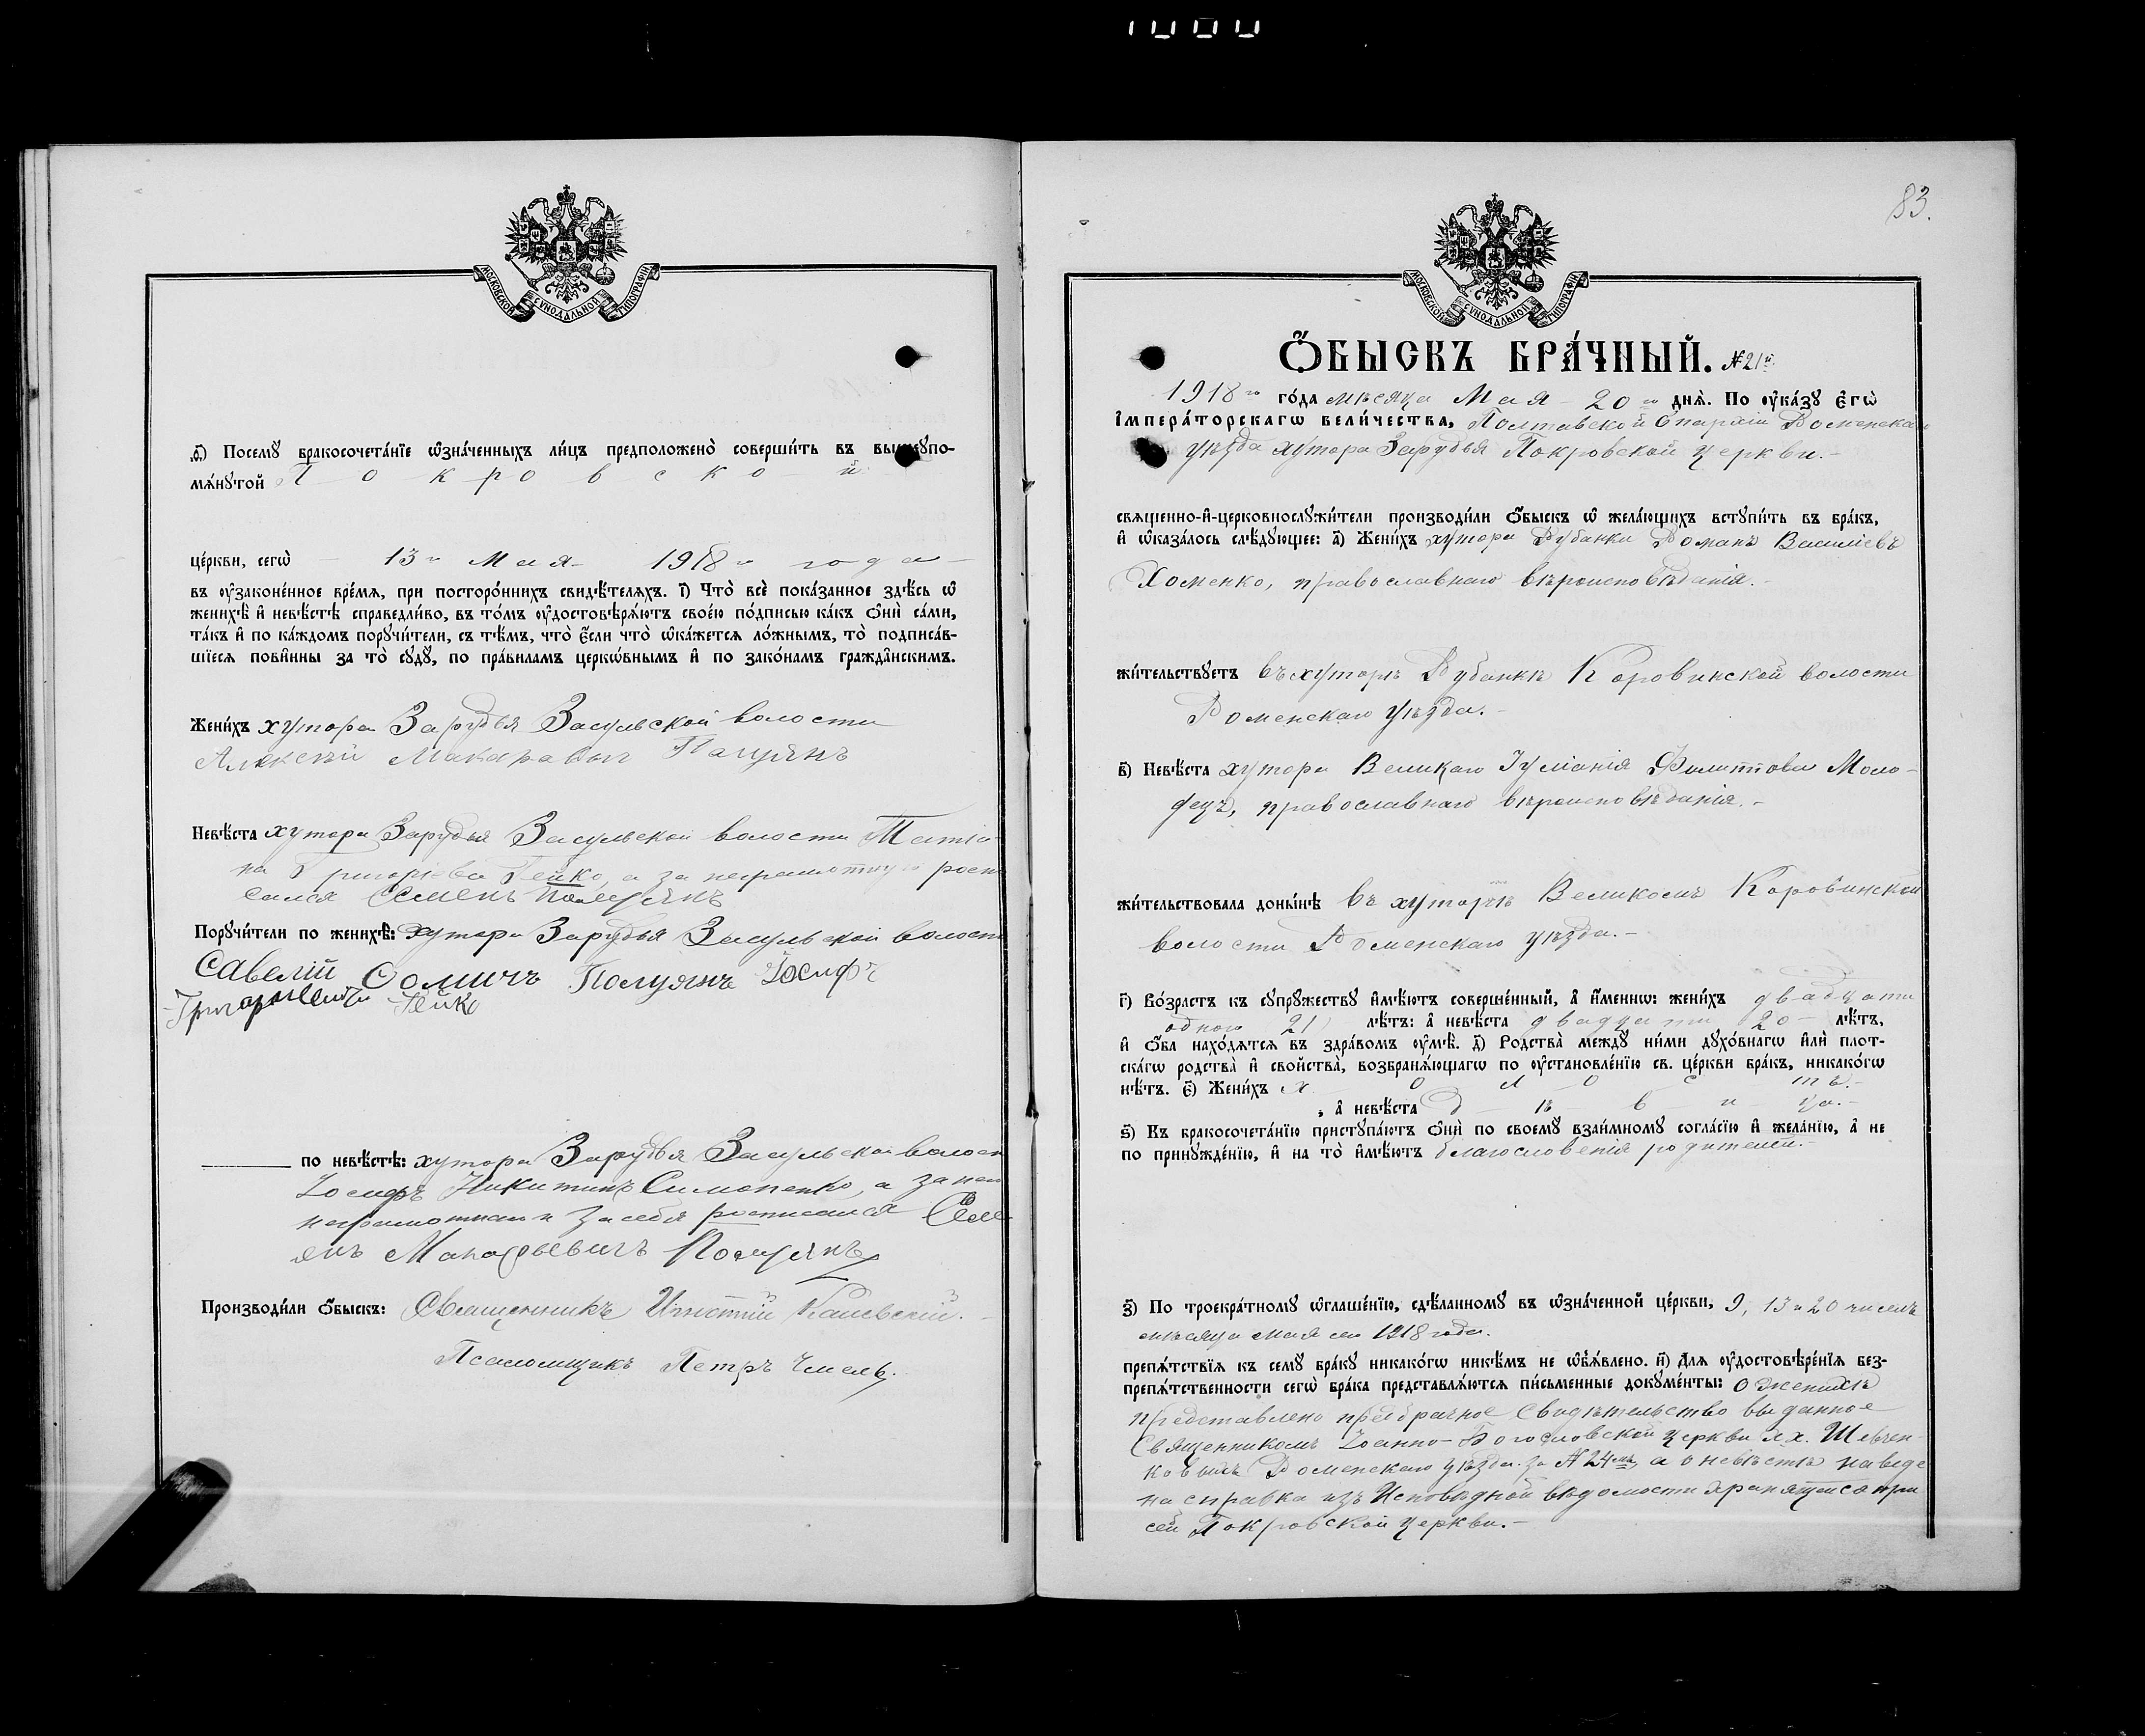 МОСКОВСКОЙ СѴНОДАЛЬНОЙ ТИПОГРАФІИ
ѳ҃) Посемꙋ̀ бракосочета́нїе ѡ҆зна́ченныхъ ли́цъ предположено̀ соверши́ть въ вышеупо-
мѧ́нꙋтой Покровской
це́ркви, сегѡ̀ 13го Мая 1918го года
въ ᲂу҆зако́ненное вре́мѧ, при посторо́ннихъ свидѣ́телѧхъ. і҃) Что̀ всѐ пока́занное здѣ́сь ѡ҆
женихѣ̀ и҆ невѣ́стѣ справедли́во, въ то́мъ ᲂу҆достовѣрѧ́ютъ свое́ю по́дписью ка́къ ѻ҆нѝ са́ми,
та́къ и҆ по ка́ждомъ порꙋчи́тели, съ тѣ́мъ, что̀ є҆́сли что̀ ѡ҆ка́жетсѧ ло́жнымъ, то̀ подписа́в-
шїесѧ пови́нны за то̀ сꙋдꙋ̀, по пра́виламъ церкѡ́внымъ и҆ по зако́намъ гражда́нскимъ.
Жени́хъ хутора Зарудья Засульской волости
Алексѣй Макаровыч Палуянъ
Невѣ́ста хутора Зарудья Засульской волости Татiа-
на Григорiева Гейко, а за неграмотную роспи
сался Семенъ Полуянъ
Порꙋчи́тели по женихѣ̀: хутора Зарудья Засульской волости
Савелій Сомичъ Полуянъ Іосифъ
Гейко
по невѣ́стѣ: хутора Зарудья Засульской волости
Іосифъ Никитинъ Симоненко, а за него
неграмотнаго и за себя росписался Сем-
енъ Макарьевичъ Полуянъ
Производи́ли ѻ҆́быскъ: Священникъ Каневский.
Псаломщикъ Петръ Чмель.
83.
МОСКОВСКОЙ СѴНОДАЛЬНОЙ ТИПОГРАФІИ
Ѻ҆́БЫСКЪ БРА́ЧНЫЙ. №21й
1918го го́да мѣсяца Мая 20го днѧ̀. По ᲂу҆ка́зꙋ Є҆гѡ̀
І҆мпера́торскагѡ вели́чества, Полтавской Епархіи Роменскаго
уѣзда хутора Зарудья Покровской церкви.
свѧще́нно-и҆-церковнослꙋжи́тели производи́ли ѻ҆́быскъ ѡ҆ жела́ющихъ встꙋпи́ть въ бра́къ,
и҆ ѡ҆каза́лось слѣ́дꙋющее: а҃) Жени́хъ хутора Рубанки Романъ Василіевъ
Хоменко, православнаго вѣроисповѣданія.
жи́тельствꙋетъ въ хуторѣ Рубанкѣ Коровинской волости
Роменскаго уѣзда.
в҃) Невѣ́ста хутора Великаго Іуліанія Филиппова Моло-
фецъ, православнаго вѣроисповѣданія.
жи́тельствовала доны́нѣ въ хуторѣ Великомъ Коровинской
волости Роменскаго уѣзда.
г҃) Во́зрастъ къ сꙋпрꙋ́жествꙋ и҆мѣ́ютъ соверше́нный, а҆ и҆́менно: жени́хъ двадцати
одного 21 лѣ́тъ: а҆ невѣ́ста двадцати 20 лѣ́тъ,
и҆ ѻ҆́ба нахо́дѧтсѧ въ здра́вомъ ᲂу҆мѣ̀. д҃) Родства̀ междꙋ̀ ни́ми дꙋхо́внагѡ и҆лѝ плот-
ска́гѡ родства̀ и҆ свойства̀, возбранѧ́ющагѡ по ᲂу҆становле́нїю св. це́ркви бра́къ, никако́гѡ
нѣ́тъ. є҃) Жени́хъ холостъ.
, а҆ невѣ́ста дѣвица.
ѕ҃) Къ бракосочета́нїю пристꙋпа́ютъ ѻ҆нѝ по своемꙋ̀ взаи́мномꙋ согла́сїю и҆ жела́нїю, а҆ не
по принꙋжде́нїю, и҆ на то̀ и҆мѣ́ютъ благословенія родителей.
з҃) По троекра́тномꙋ ѡ҆глаше́нїю, сдѣ́ланномꙋ въ ѡ҆зна́ченной це́ркви, 9, 13 и 20 числъ
мѣсяца мая сего 1918 года.
препѧ́тствїѧ къ семꙋ̀ бра́кꙋ никако́гѡ никѣ́мъ не ѡ҆б̾ѧ́влено. и҃) Длѧ ᲂу҆достовѣре́нїѧ без-
препѧ́тственности сегѡ̀ бра́ка представлѧ́ютсѧ пи́сьменные докꙋме́нты: о женихѣ
представлено предбрачное свидѣтельство выданное
Священникомъ Іоанно-Богословской церкви х. Шевчен-
ковымъ Роменскаго уѣзда за №24мъ, а о невѣстѣ наведе
на справка изъ Исповѣдной вѣдомости хранящейся при
сей Покровской церкви.